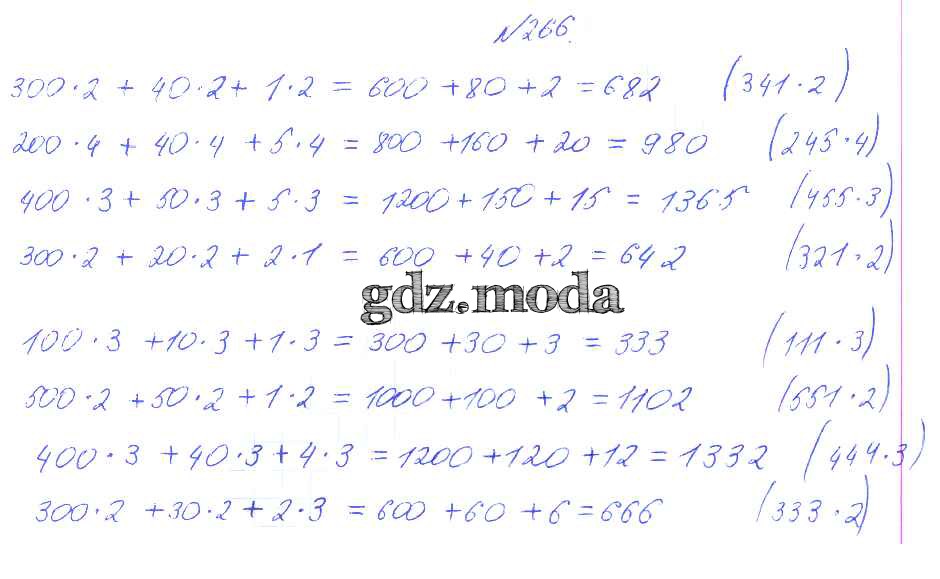 №266.
300·2 + 40·2 + 1·2 = 600 + 80 + 2 = 682 (341·2)
200·4 + 40·4 + 5·4 = 800 + 160 + 20 = 980 (245·4)
400·3 + 50·3 + 5·3 = 1200 + 150 + 15 = 1365 (455·3)
300·2 + 20·2 + 2·1 = 600 + 40 + 2 = 642 (321·2)
gdz.moda
100·3 + 10·3 + 1·3 = 300 + 30 + 3 = 333 (111·3)
500·2 + 50·2 + 1·2 = 1000 + 100 + 2 = 1102 (551·2)
400·3 + 40·3 + 4·3 = 1200 + 120 + 12 = 1332 (444·3)
300·2 + 30·2 + 2·3 = 600 + 60 + 6 = 666 (333·2)